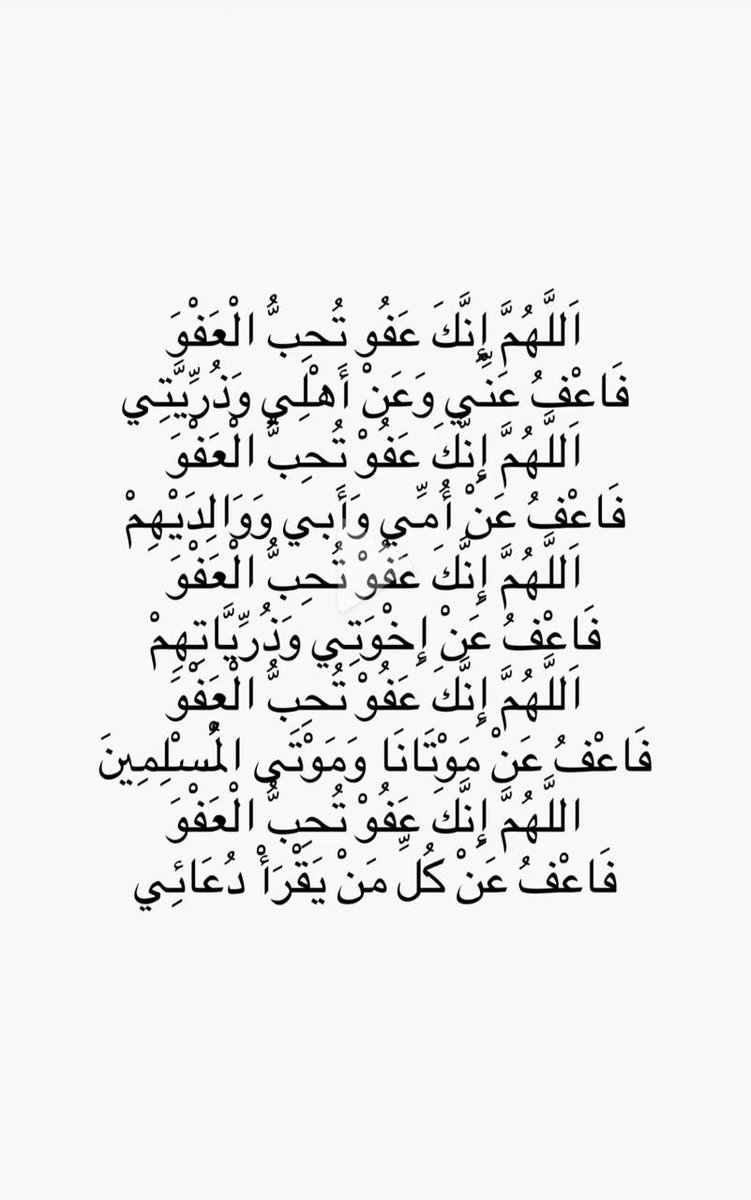 اَللَّهُمَّ إِنَّكَ عَفُو تُحِبُّ الْعَفْوَ
فَاعْفُ عَنِّي وَعَنْ أَهْلِي وَذُرِّيَّتِي
اَللَّهُمَّ إِنَّكَ عَفُوْ تُحِبُّ الْعَفْوَ
فَاعْفُ عَنْ أُمِّي وَأَبي وَوَالِدَيْهِمْ
اَللَّهُمَّ إِنَّكَ عَفُوْ تُحِبُّ الْعَفْوَ
فَاعْفُ عَنْ إِخْوَتِي وَذُرِّيَّاتِهِمْ
اَللَّهُمَّ إِنَّكَ عَفُوْ تُحِبُّ الْعَفْوَ
فَاعْفُ عَنْ مَوْتَانَا وَمَوْتَى الْمُسْلِمِينَ
اللَّهُمَّ إِنَّكَ عَفُوْ تُحِبُّ الْعَفْوَ
فَاعْفُ عَنْ كُلِّ مَنْ يَقْرَأْ دُعَائِي